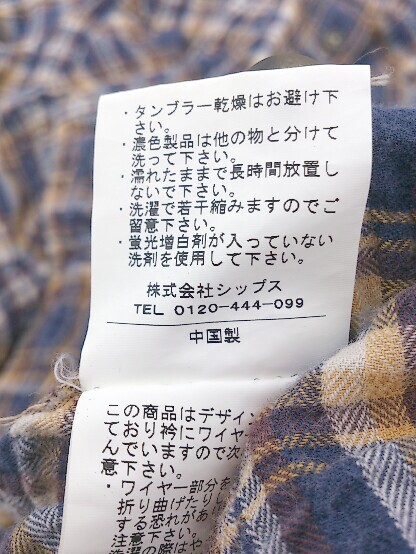 ・タンブラー乾燥はお避け下
さい。
・濃色製品は他の物と分けて
洗って下さい。
・濡れたままで長時間放置し
ないで下さい。
・洗濯で若干縮みますのでご
留意下さい。
・蛍光増白剤が入っていない
洗剤を使用して下さい。
株式会社シップス
TEL 0120-444-099
中国製
この商品はデザイン
ており衿にワイヤー
んでいますので次
意下さい。
・ワイヤー部分を
折り曲げたりし
する恐れがあ
注意下さい。
洗濯の際はや